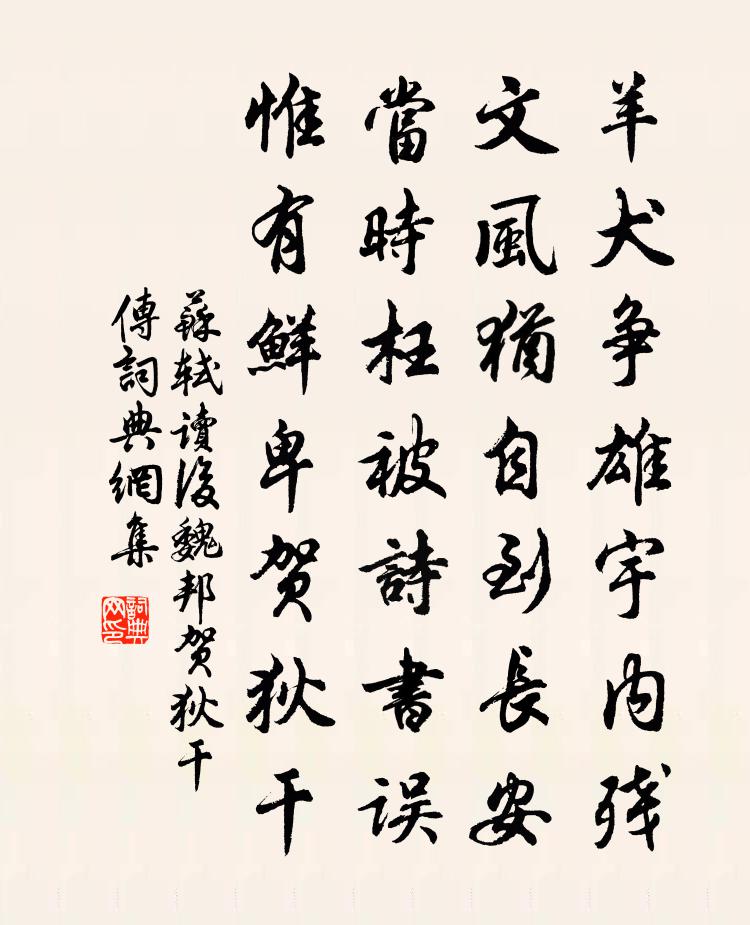 羊犬争雄宇内残
文風猶自到長安
當時枉被詩書誤
惟有鮮卑贺狄干
蘇轼讀後魏邦贺狄干
傳詞典網集
詞典网印